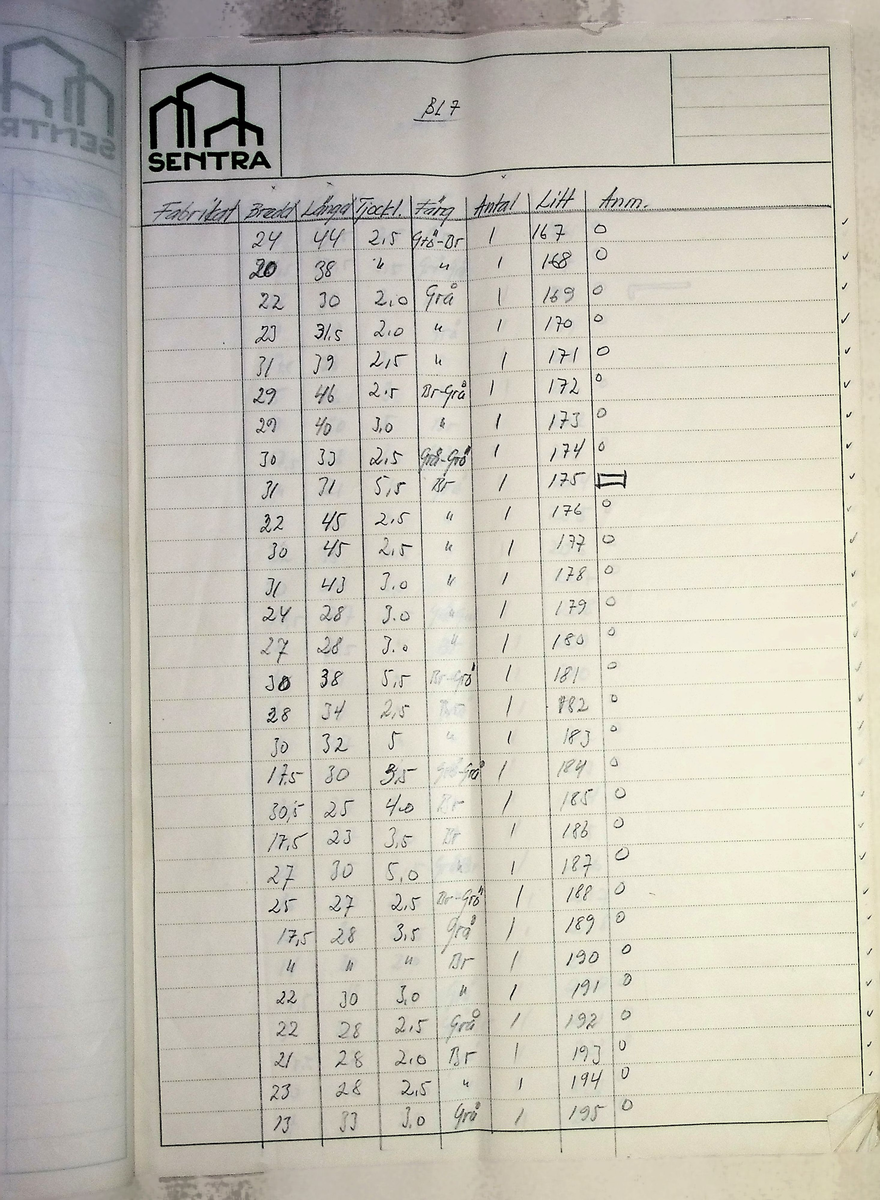 SENTRA
BL 7
Fabrikat Bredd Längd Tjockl. Färg Antal Litt Anm.
24 44 2,5 Grå-Br 1 167 o
20 38 " " 1 168 o
22 30 2,0 Grå 1 169 o
23 31,5 2,0 " 1 170 o
31 39 2,5 " 1 171 o
29 46 2,5 Br-Grå 1 172 o
29 40 3,0 " 1 173 o
30 33 2,5 Grå-Grå 1 174 o
31 31 5,5 Br 1 175
22 45 2,5 " 1 176 o
30 45 2,5 " 1 177 o
31 43 3.0 " 1 178 o
24 28 3.0 " 1 179 o
27 28 3.0 " 1 180 o
30 38 5,5 Br-Grå 1 181 o
28 34 2,5 1 182 o
30 32 5 " 1 183 o
17,5 30 3,5 Grå-Grå 1 184 o
30,5 25 4.0 Br 1 185 o
17,5 23 3,5 Br 1 186 o
27 30 5,0 " 1 187 o
25 27 2,5 Br-Grå 1 188 o
17,5 28 3,5 Grå 1 189 o
" " " Br 1 190 o
22 30 3,0 " 1 191 o
22 28 2,5 Grå 1 192 o
21 28 2,0 Br 1 193 o
23 28 2,5 " 1 194 o
23 33 3,0 Grå 1 195 o